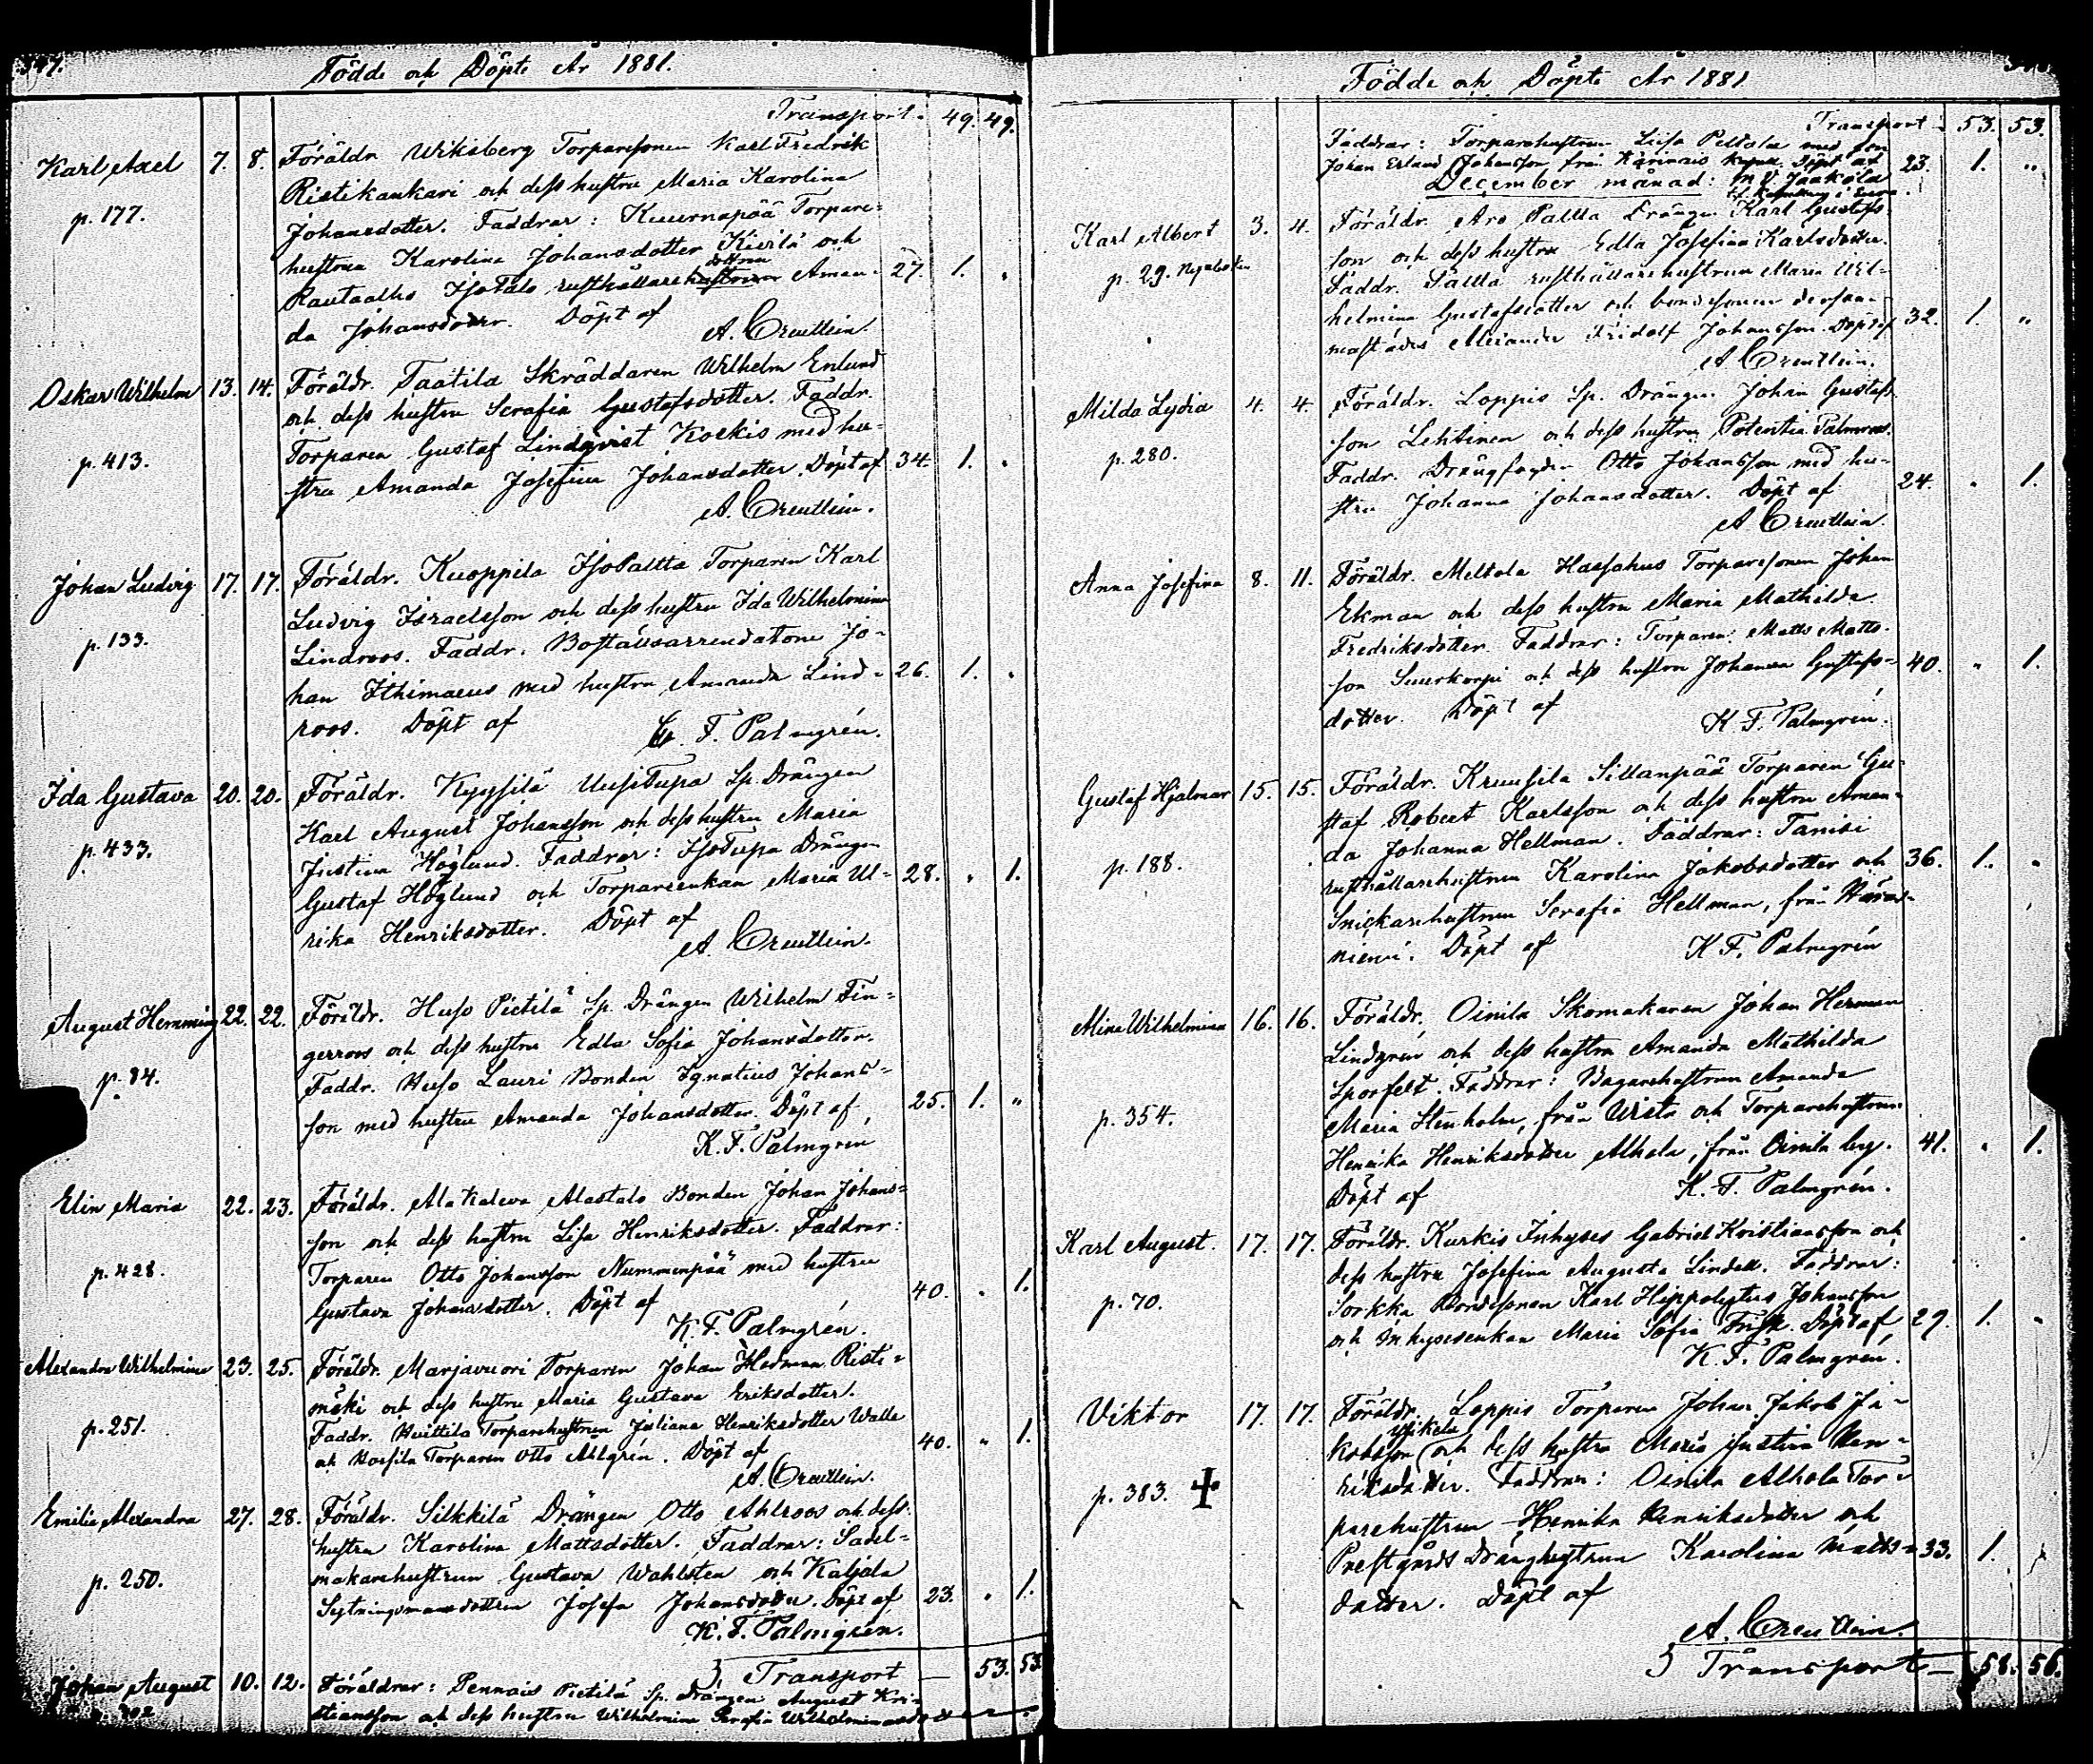 347.
Födde och Döpte År 1881.
Transport. 49. 49.
Karl Axel 7. 8. Föräldr Wiksberg Torparesonen Karl Fredrik
p. 177. Ristikankari och dess hustru Maria Karolina
Johansdotter. Faddrar: Kuurnapää Torpare-
hustrun Karolina Johansdotter Kierlä och
Rautaalho IsoTalo rusthållarehustrun dottren Aman- 27. 1. "
da Johansdotter. Döpt af
A. Creutlein.
Oskar Wilhelm 13. 14. Föräldr. Taatila Skräddaren Wilhelm Enlund
och dess hustru Serafia Gustafsdotter. Faddr.
p. 413. Torparen Gustaf Lindqvist Koskis med hu-
stru Amanda Josefina Johansdotter. Döpt af 34. 1. "
A. Creutlein.
Johan Ludvig 17. 17. Föräldr. Kuoppila IsoPaltta Torparen Karl
Ludvig Israelsson och dess hustru Ida Wilhelmina
p. 133. Lindroos. Faddr. Boställsarrendatorn Jo-
han Ithimaeus med hustru Amanda Lind- 26. 1. "
roos. Döpt af
K. F. Palmgrén.
Ida Gustava 20. 20. Föräldr. Kyysilä UusiTupa Sp. Drängen
Karl August Johansson och dess hustru Maria
p. 433. Justina Höglund. Faddrar: IsoTupa Drängen
Gustaf Höglund och Torpareenkan Maria Ul- 28. " 1.
rika Henriksdotter. Döpt af
A. Creutlein.
August Hemming 22. 22. Föräldr. Huso Pietilä Sp. Drängen Wilhelm Fin-
gerroos och dess hustru Edla Sofia Johansdotter.
p. 84. Faddr. Huso Lauri Bonden Ignatius Johans-
son med hustru Amanda Johansdotter. Döpt af 25. 1. "
K. F. Palmgrén
Elin Maria 22. 23. Föräldr. AlaKaleva Alastalo Bonden Johan Johans-
son och dess hustru Lisa Henriksdotter. Faddrar:
p. 428. Torparen Otto Johansson Nummenpää med hustru
Gustava Johansdotter. Döpt af 40. " 1.
K. F. Palmgrén.
Alexandra Wilhelmina 23. 25. Föräldr. Marjavuori Torparen Johan Herman Risti-
mäki och dess hustru Maria Gustava Eriksdotter.
p. 251. Faddr. Huittila Torparehustrun Juliana Henriksdotter Walla
och Torparen Otto Ahlgrén. Döpt af 40. " 1.
A. Creutlein.
Emilia Alexandra 27. 28. Föräldr. Silkkilä Drängen Otto Ahlroos och dess
hustru Karolina Mattsdotter. Faddrar: Sadel-
p. 250. makarehustrun Gustava Wahlsten och Kaljala
Sytningsmansdottren Josefa Johansdotter. Döpt af 23. " 1.
K. F. Palmgrén.
Transport — 53. 53.
Johan August 10. 12. Föräldrar: Pennais Pietilä Sp. Drängen August Kri-
stiansson och dess hustru Wilhelmina Serafia
Födde och Döpte År 1881
Transport - 53. 53.
Faddrar: Torparehustrun Lisa Peltola med son
Johan Erland Johansson från Karinais kapell. Döpt af 23. 1. "
December månad: M. V. Jaakola
Karl Albert 3. 4. Föräldr. Aro Paltta Drängen Karl Gustafs-
p. 29. son och dess hustru Edla Josefina Karlsdotter.
Faddr. Paltta rusthållarehustrun Maria Wil-
helmina Gustafsdotter och bondesonen dersam-
mastädes Alexander Fridolf Johansson. Döpt af 32. 1. "
A. Creutlein.
Milda Lydia 4. 4. Föräldr. Loppis Sp. Drängen Johan Gustafs-
son Lehtinen och dess hustru Potentia Palmroos.
p. 280. Faddr. Drängfogden Otto Johansson med hu-
stru Johanna Johansdotter. Döpt af 24. " 1.
A. Creutlein
Anna Josefina 8. 11. Föräldr. Meltola Hassahus Torparesonen Johan
Ekman och dess hustru Maria Mathilda
Fredriksdotter. Faddrar: Torparen Matts Matts-
son Suurkorpi och dess hustru Johanna Gustafs- 40. " 1.
dotter. Döpt af
K. F. Palmgrén.
Gustaf Hjalmar 15. 15. Föräldr. Kruusila Sillanpää Torparen Gu-
staf Robert Karlsson och dess hustru Aman-
da Johanna Hellman. Faddrar: Tanisi
p. 188. rusthållarehustrun Karolina Jakobsdotter och 36. 1. "
Snickarehustrun Serafia Hellman, från
niemi. Döpt af K. F. Palmgrén
Mina Wilhelmina 16. 16. Föräldr. Oinila Skomakaren Johan Herman
Lindgrén och dess hustru Amanda Mathilda
Sporfelt. Faddrar: Bagarehustrun Amanda
p. 354. Maria Stenholm, från Wista och Torparehustrun
Henrika Henriksdotter Alhola, från Oinila by. 41. " 1.
Döpt af K. F. Palmgrén.
Karl August. 17. 17. Föräldr. Kurkis Inhyses Gabriel Kristiansson och
dess hustru Josefina Augusta Lindell. Faddrar:
p. 70. Sorkka Bondesonen Karl Hippolytus Johansson
och Inhysesenkan Maria Sofia Frisk. Döpt af 29. 1. "
K. F. Palmgrén.
Viktor 17. 17. Föräldr. Loppis Torparen Johan Jakob Ja-
kobsson och dess hustru Maria Justina Hen-
riksdotter. Faddrar: Oinila Alhola Tor-
p. 383. + parehustrun Henrika Henriksdotter och
Prestgårds Dränghustrun Karolina Matts- 33. 1.
dotter. Döpt af
A. Creutlein.
Transport — 58. 56.